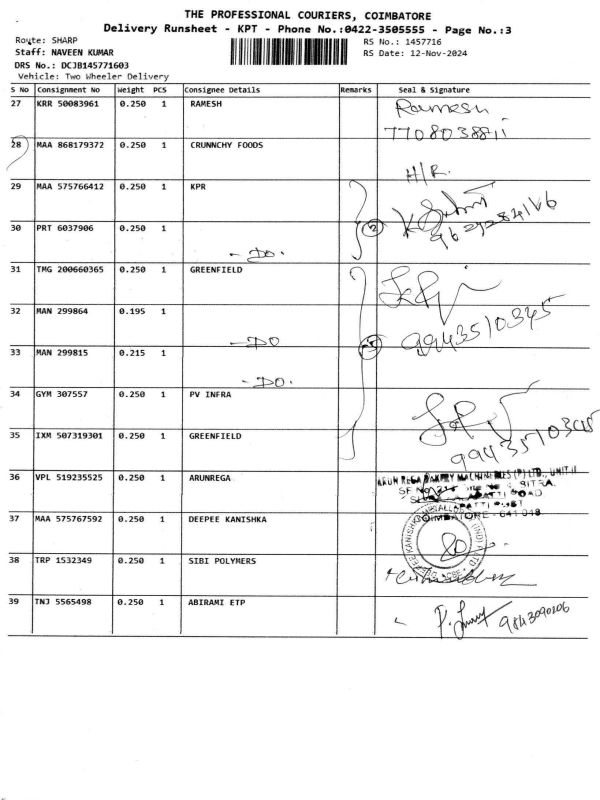 THE PROFESSIONAL COURIERS, COIMBATORE
Delivery Runsheet - KPT - Phone No.:0422-3505555 - Page No.:3
Route: SHARP
RS No.: 1457716
Staff: NAVEEN KUMAR
RS Date: 12-Nov-2024
DRS No.: DCJB145771603
Vehicle: Two Wheeler Delivery
S No Consignment No Weight PCS Consignee Details Remarks Seal & Signature
27 KRR 50083961 0.250 1 RAMESH Ramesh
28 MAA 868179372 0.250 1 CRUNNCHY FOODS
H/R.
29 MAA 575766412 0.250 1 KPR
30 PRT 6037906 0.250 1
2
- DO.
31 TMG 200660365 0.250 1 GREENFIELD
32 MAN 299864 0.195 1
9943510345
- DO
33 MAN 299815 0.215 1
- DO.
34 GYM 307557 0.250 1 PV INFRA
35 IXM 507319301 0.250 1 GREENFIELD
9943510345
36 VPL 519235525 0.250 1 ARUNREGA
ARUN REGA BAKERY MACHINERIES (P) LTD., UNIT II
COIMBATORE - 641 048
37 MAA 575767592 0.250 1 DEEPEE KANISHKA
38 TRP 1532349 0.250 1 SIBI POLYMERS
39 TNJ 5565498 0.250 1 ABIRAMI ETP
9843090206